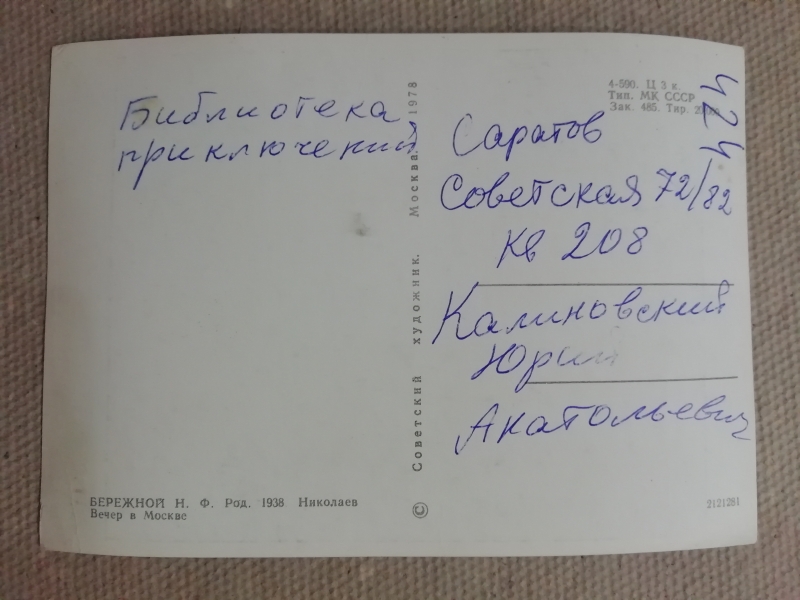 Библиотека
приключений
БЕРЕЖНОЙ Н. Ф. Род. 1938 Николаев
Вечер в Москве
Советский художник. Москва. 1978
©
4-590. Ц 3 к.
Тип. МК СССР
Зак. 485. Тир.
424
Саратов
Советская 72/82
кв 208
Калиновский
Юрий
Анатольевич
2121281